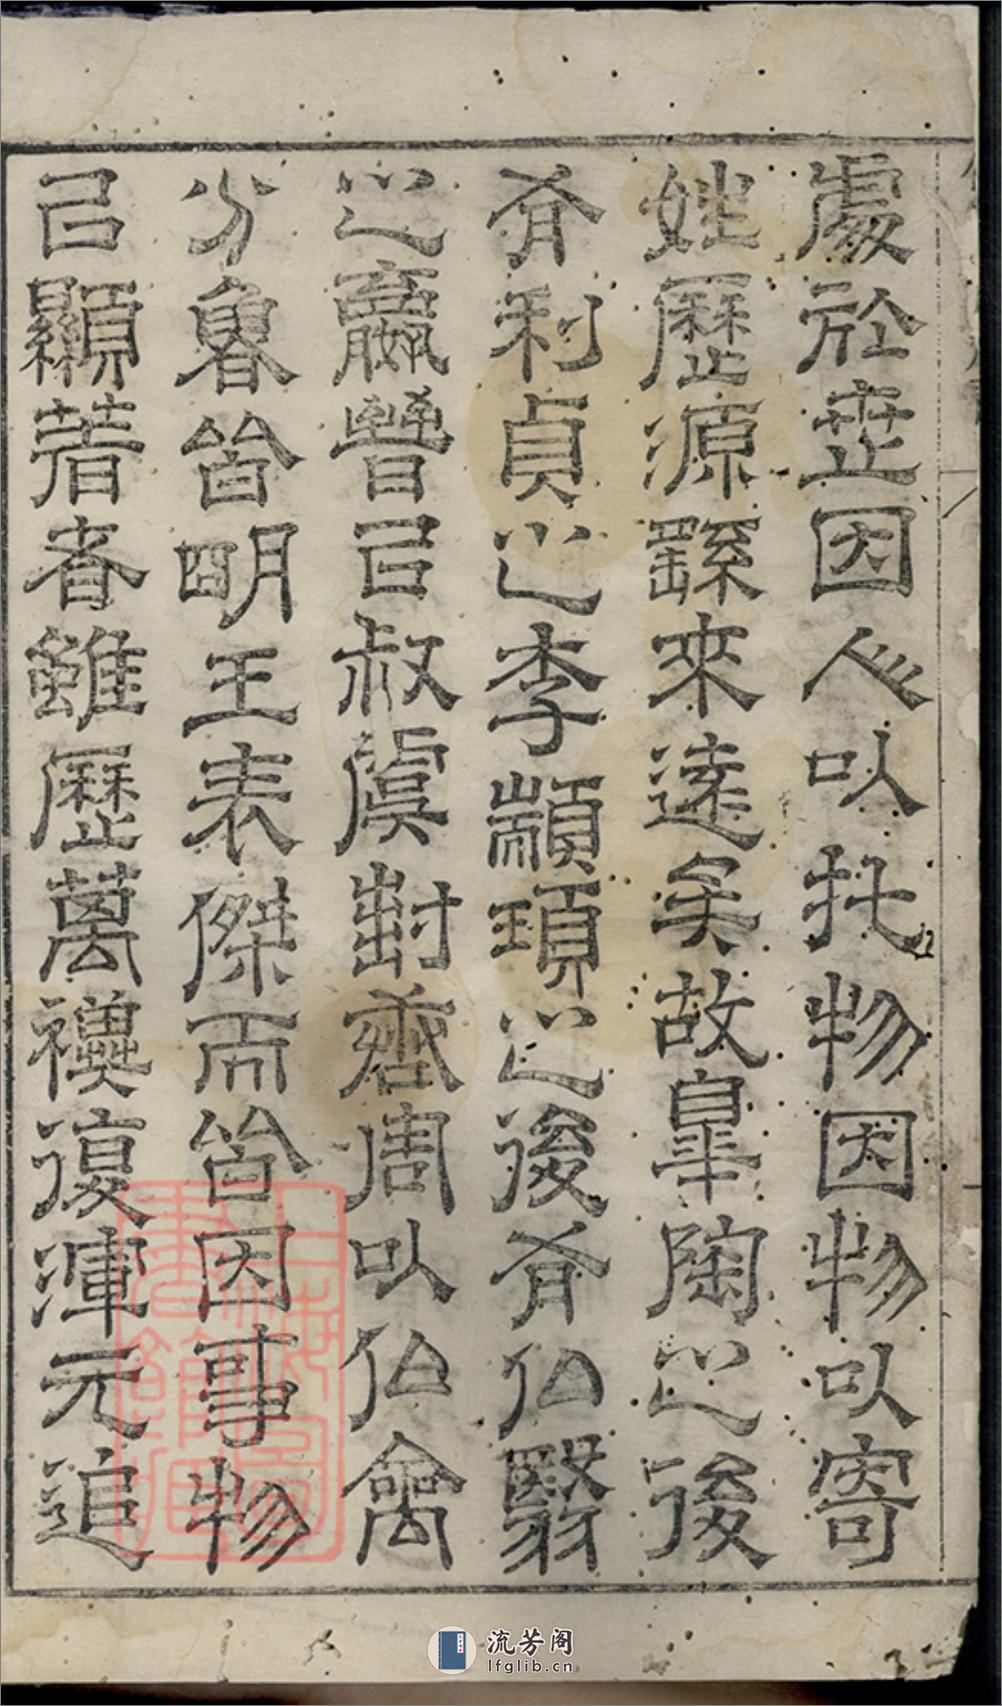 處於世因人以托物因物以寄
姓歷源繇來遠矣故皐陶之後
有利貞之李顓頊之後有伯翳
之嬴晉以叔虞封齊周以伯禽
分魯皆明王表傑而皆因事物
以顯著者雖歷萬禩復渾元追
流芳阁
lfglib.cn